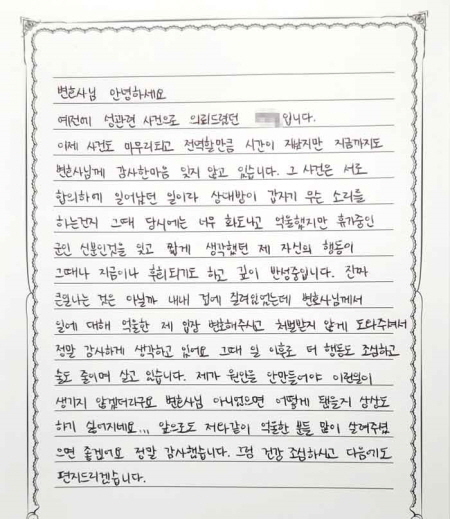 변호사님 안녕하세요
예전에 성관련 사건으로 의뢰드렸던 입니다.
이제 사건도 마무리되고 전역할만큼 시간이 지났지만 지금까지도
변호사님께 감사한마음 잊지 않고 있습니다. 그 사건은 서로
합의하에 일어났던 일이라 상대방이 갑자기 무슨 소리를
하는건지 그때 당시에는 너무 화도나고 억울했지만 휴가중인
군인 신분인것을 잊고 짧게 생각했던 제 자신의 행동이
그때나 지금이나 후회되기도 하고 깊이 반성중입니다. 진짜
큰일나는 것은 아닐까 내내 겁에 질려있었는데 변호사님께서
일에 대해 억울한 제 입장 변호해주시고 처벌받지 않게 도와주셔서
정말 감사하게 생각하고 있어요 그때 일 이후로 더 행동도 조심하고
술도 줄이며 살고 있습니다. 제가 원인을 안만들어야 이런일이
생기지 않겠더라구요 변호사님 아니었으면 어떻게 됐을지 상상도
하기 싫어지네요... 앞으로도 저와같이 억울한 분들 많이 살려주셨
으면 좋겠어요 정말 감사했습니다. 그럼 건강 조심하시고 다음에도
편지드리겠습니다.